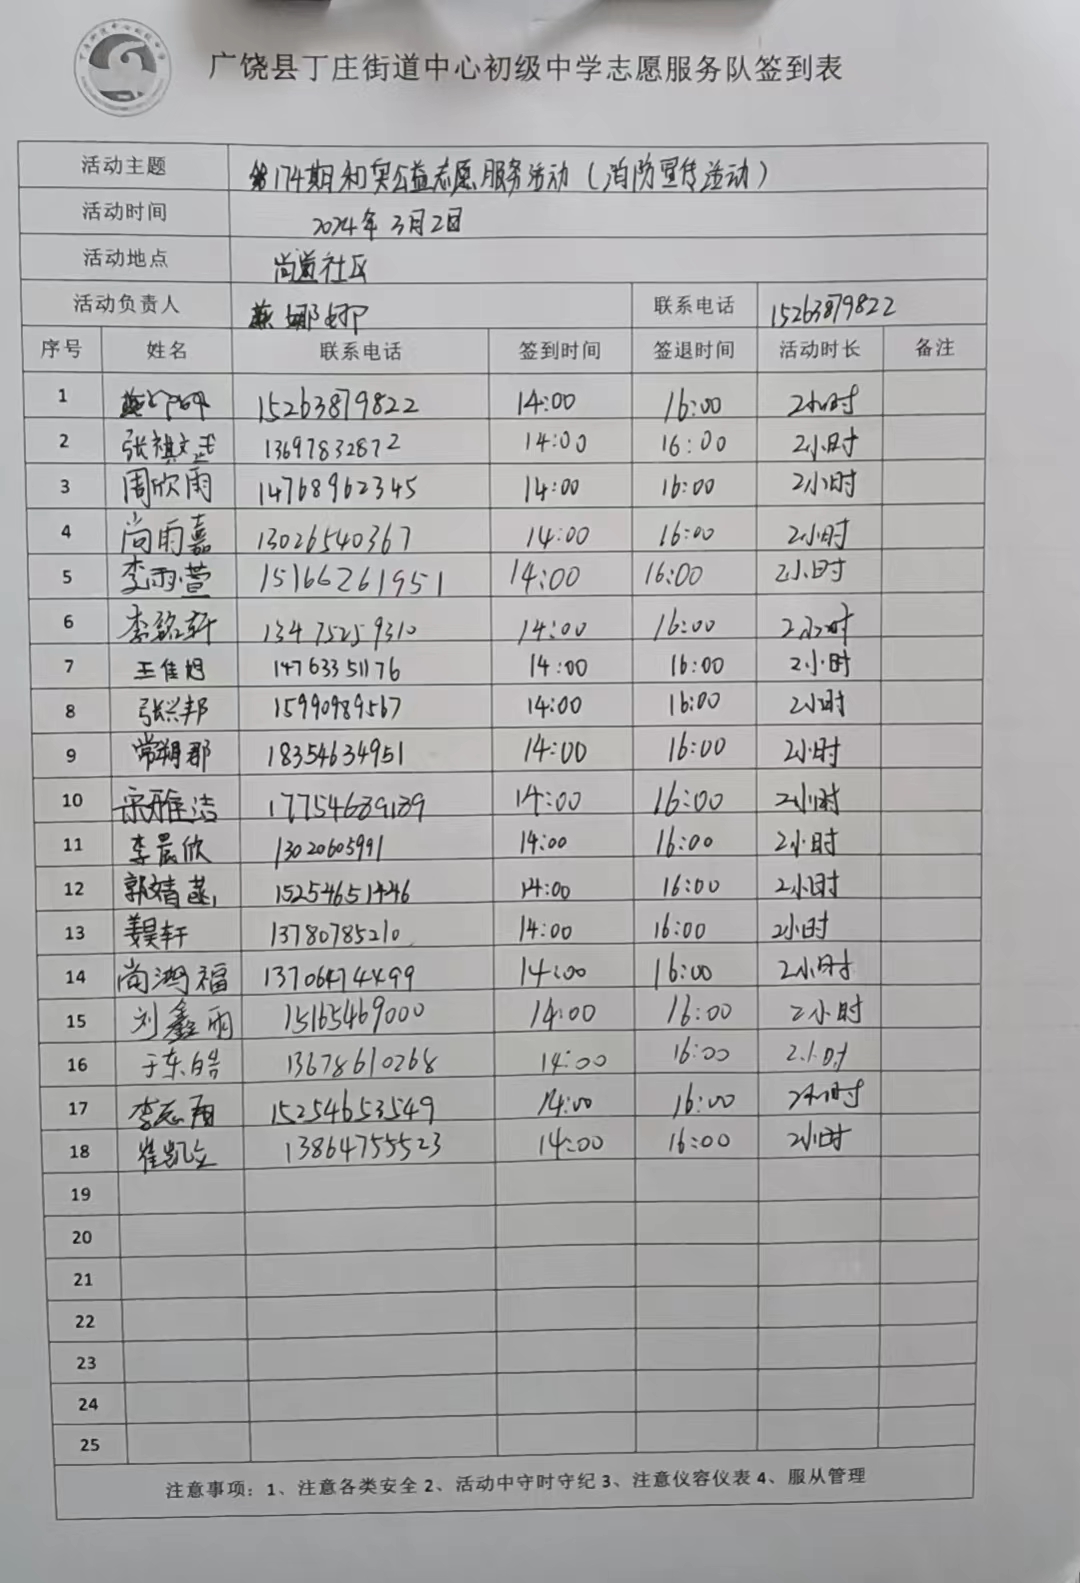 广饶县丁庄街道中心初级中学志愿服务队签到表
活动主题 第174期和奥公益志愿服务活动（消防宣传活动）
活动时间 2024年3月2日
活动地点 尚道社区
活动负责人 燕娜娜 联系电话 15263879822
序号 姓名 联系电话 签到时间 签退时间 活动时长 备注
1 15263879822 14:00 16:00 2小时
2 张祺文 13697832872 14:00 16:00 2小时
3 周欣雨 14768962345 14:00 16:00 2小时
4 尚雨嘉 13026540367 14:00 16:00 2小时
5 李雨萱 15166261951 14:00 16:00 2小时
6 李铭轩 13475259310 14:00 16:00 2小时
7 王佳旭 14763351176 14:00 16:00 2小时
8 张兴邦 15990989567 14:00 16:00 2小时
9 常朔郡 18354634951 14:00 16:00 2小时
10 宋雅洁 17754639139 14:00 16:00 2小时
11 李晨欣 13020605991 14:00 16:00 2小时
12 郭婧菡 15254651446 14:00 16:00 2小时
13 姜昊轩 13780785210 14:00 16:00 2小时
14 尚鸿福 13706474499 14:00 16:00 2小时
15 刘鑫雨 15165469000 14:00 16:00 2小时
16 于东皓 13678610268 14:00 16:00 2小时
17 李志翔 15254653549 14:00 16:00 2小时
18 崔凯立 13864755523 14:00 16:00 2小时
19
20
21
22
23
24
25
注意事项：1、注意各类安全 2、活动中守时守纪 3、注意仪容仪表 4、服从管理